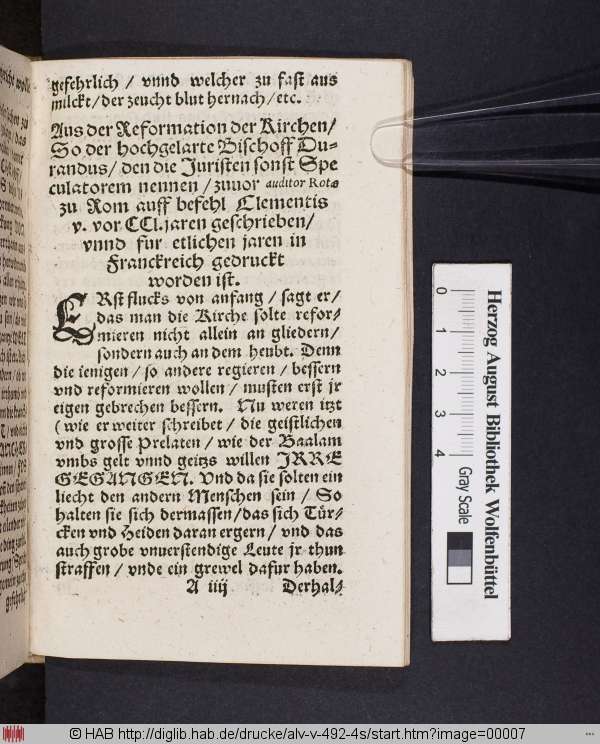 gefehrlich / vnnd welcher zu fast aus
milckt / der zeucht blut hernach / etc.
Aus der Reformation der Kirchen /
So der hochgelarte Bischoff Du-
randus / den die Juristen sonst Spe
culatorem nennen / zuuor auditor Rotæ
zu Rom auff befehl Clementis
v. vor CCl. jaren geschrieben /
vnnd fur etlichen jaren in
Franckreich gedruckt
worden ist.
ERst flucks von anfang / sagt er /
das man die Kirche solte refor-
mieren nicht allein an gliedern /
sondern auch an dem heubt. Denn
die ienigen / so andere regieren / bessern
vnd reformieren wollen / musten erst jr
eigen gebrechen bessern. Nu weren itzt
( wie er weiter schreibet / die geistlichen
vnd grosse Prelaten / wie der Baalam
vmbs gelt vnnd geitzs willen JRRE
GEGANGEN. Vnd da sie solten ein
liecht den andern Menschen sein / So
halten sie sich dermassen / das sich Tür-
cken vnd Heiden daran ergern / vnd das
auch grobe vnuerstendige Leute jr thun
straffen / vnde ein grewel dafur haben.
A iiij Derhal-
0 1 2 3 4
Gray Scale
Herzog August Bibliothek Wolfenbüttel
© HAB http://diglib.hab.de/drucke/alv-v-492-4s/start.htm?image=00007